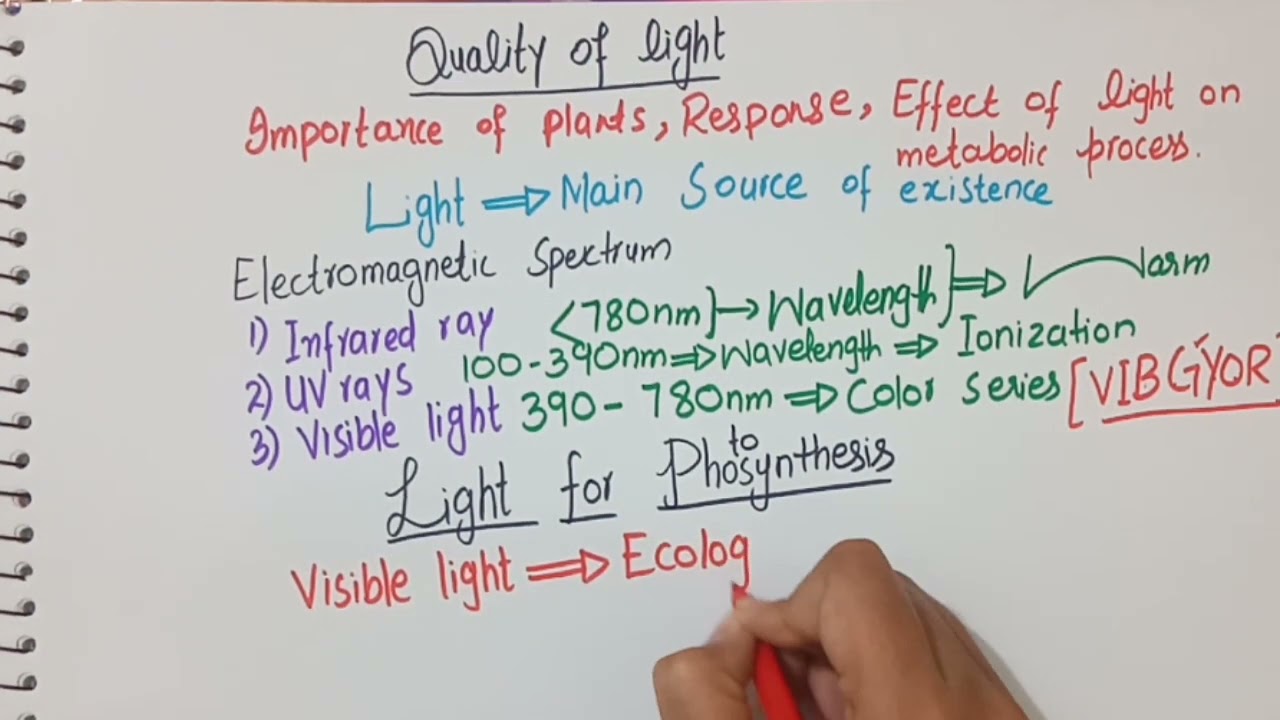 Quality of light
Importance of plants, Response, Effect of light on
metabolic process.
Light ⇒ Main Source of existence
Electromagnetic Spectrum
1) Infrared ray <780nm} → Wavelength} ⇒
2) UV rays 100-390nm ⇒ Wavelength ⇒ Ionization
3) Visible light 390-780nm ⇒ Color series [VIBGYOR
Light for Phosynthesis
to
Visible light ⇒ Ecolog